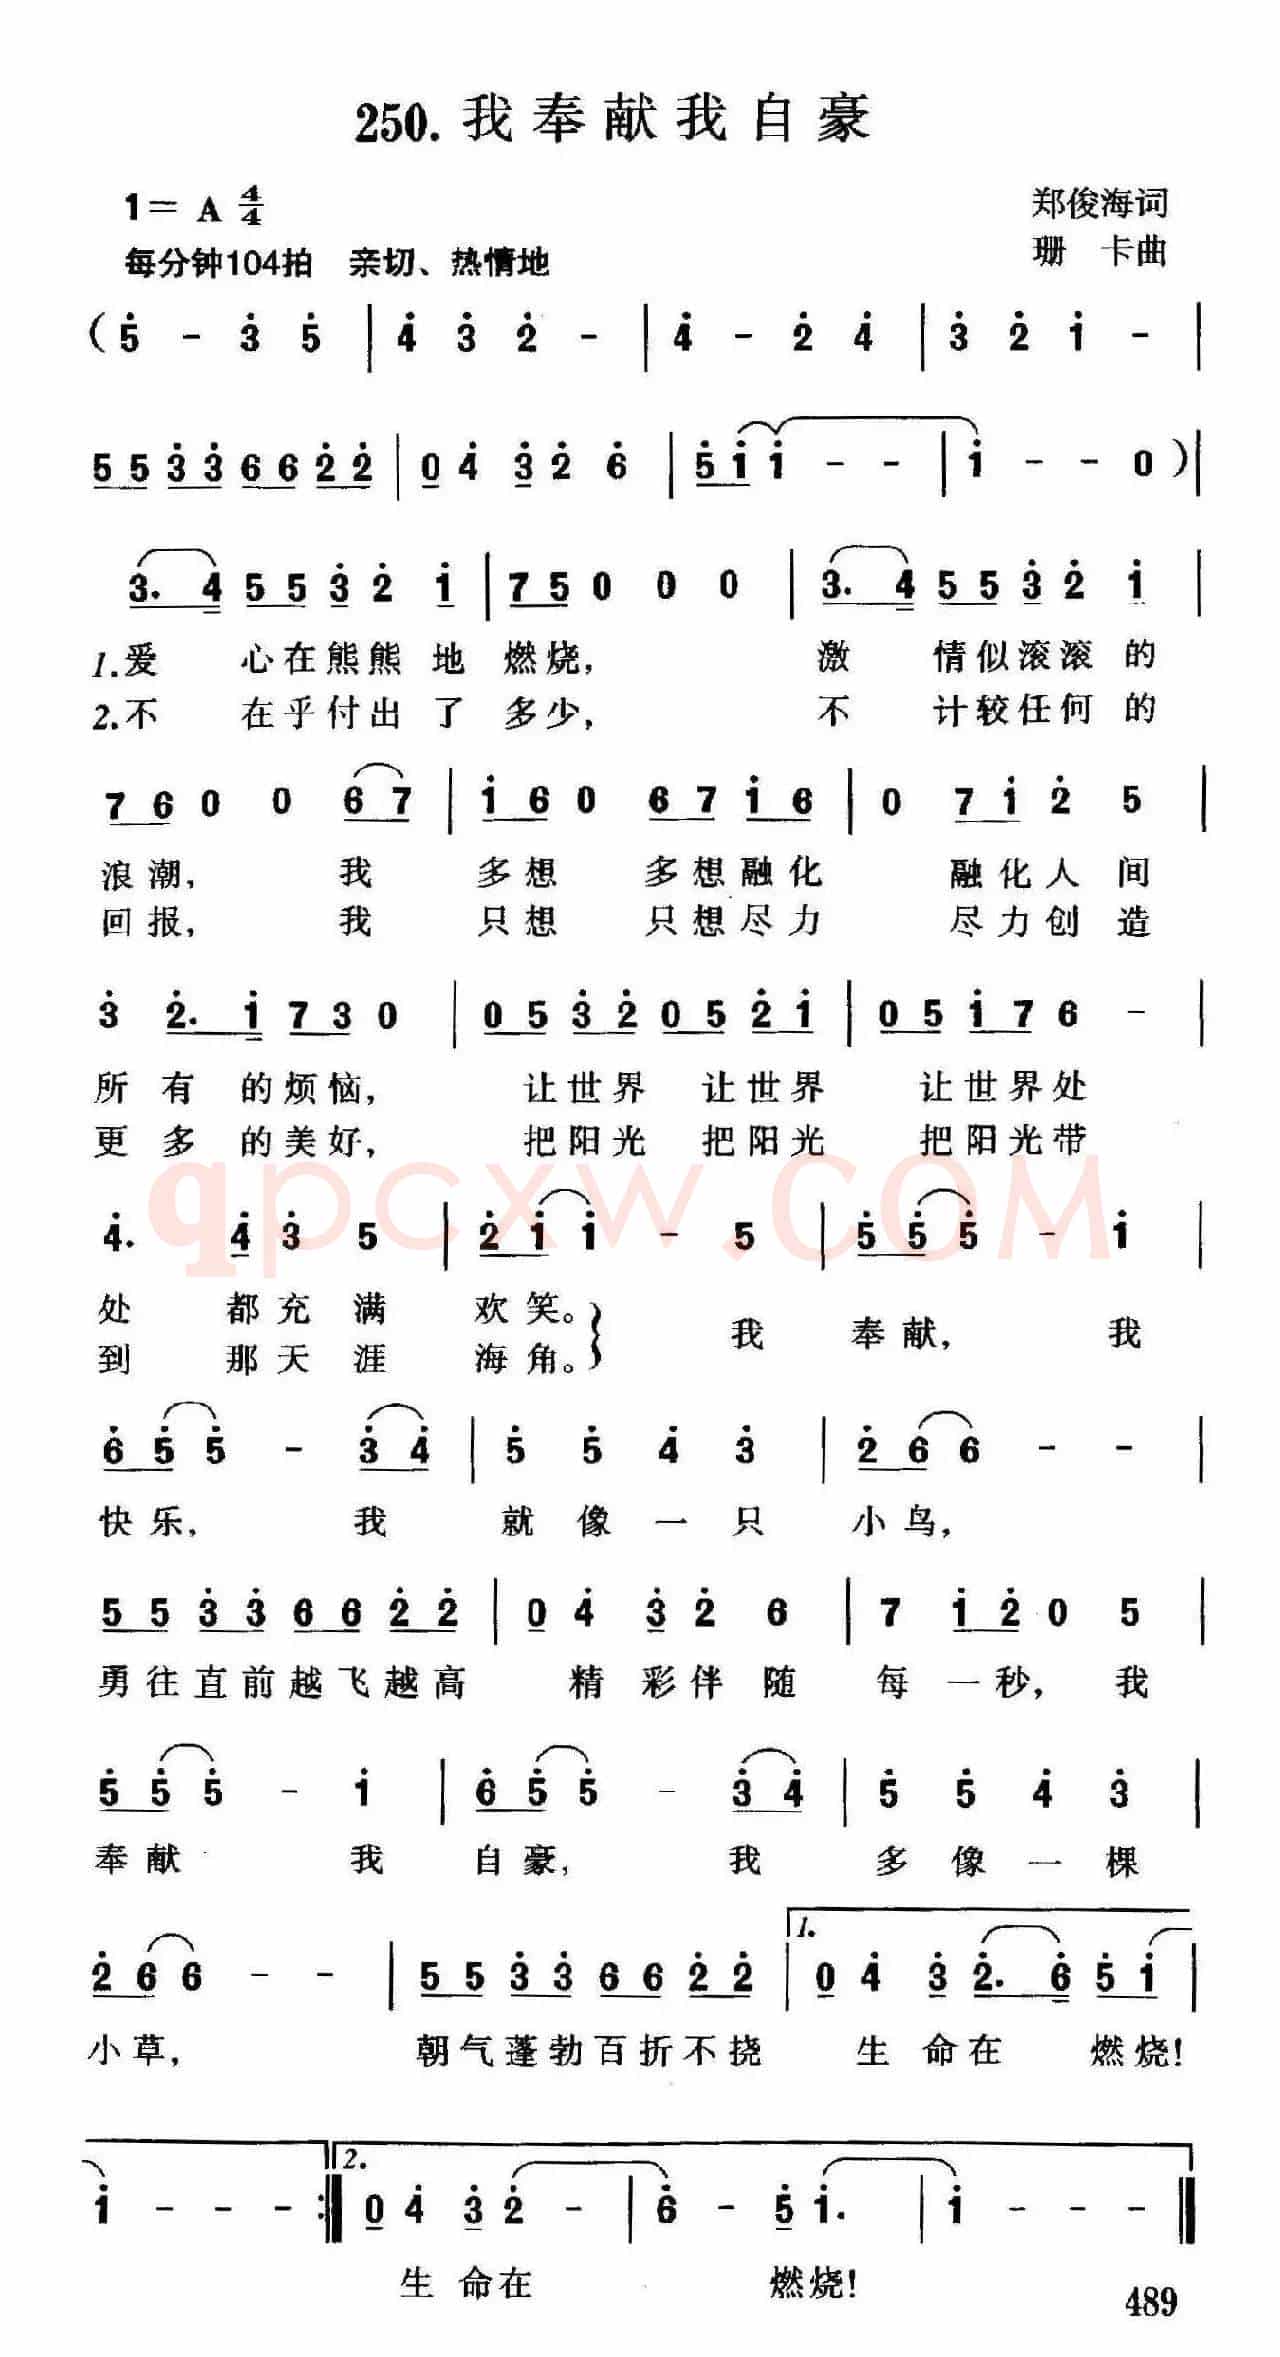 250. 我奉献我自豪
1= A 4/4
郑俊海词
每分钟104拍 亲切、热情地
珊 卡曲
(5̇ - 3̇ 5̇ | 4̇ 3̇ 2̇ - | 4̇ - 2̇ 4̇ | 3̇ 2̇ 1̇ - |
5 5 3̇ 3̇ 6 6 2̇ 2̇ | 0 4̇ 3̇ 2̇ 6̇ | 5̇ 1̇ 1̇ - - | 1̇ - - 0 )|
3. 4 5 5 3̇ 2̇ 1̇ | 7 5 0 0 0 | 3. 4 5 5 3̇ 2̇ 1̇ |
1.爱 心在熊熊 地 燃烧, 激 情似滚滚 的
2.不 在乎付出 了 多少, 不 计较任何 的
7 6 0 0 6 7 | 1̇ 6 0 6 7 1̇ 6 | 0 7 1̇ 2̇ 5 |
浪潮, 我 多想 多想融化 融化人间
回报, 我 只想 只想尽力 尽力创造
3̇ 2̇. 1̇ 7 3 0 | 0 5 3̇ 2̇ 0 5 2̇ 1̇ | 0 5 1̇ 7 6 - |
所有 的烦恼, 让世界 让世界 让世界处
更多 的美好, 把阳光 把阳光 把阳光带
qpcxw.COM
4̇. 4̇ 3̇ 5 | 2̇ 1̇ 1̇ - 5 | 5̇ 5̇ 5̇ - 1̇ |
处 都充满 欢笑。} 我 奉献, 我
到 那天涯 海角。}
6̇ 5̇ 5̇ - 3̇ 4̇ | 5̇ 5̇ 4̇ 3̇ | 2̇ 6 6 - - |
快乐, 我 就像一只 小鸟,
5 5 3̇ 3̇ 6 6 2̇ 2̇ | 0 4̇ 3̇ 2̇ 6 | 7 1̇ 2̇ 0 5 |
勇往直前越飞越高 精 彩伴随 每一秒, 我
5̇ 5̇ 5̇ - 1̇ | 6̇ 5̇ 5̇ - 3̇ 4̇ | 5̇ 5̇ 4̇ 3̇ |
奉献 我 自豪, 我 多像一棵
1.
2̇ 6 6 - - | 5 5 3̇ 3̇ 6 6 2̇ 2̇ | 0 4̇ 3̇ 2̇. 6̇ 5̇ 1̇ |
小草, 朝气蓬勃百折不挠 生 命在 燃烧!
2.
1̇ - - - :‖ 0 4̇ 3̇ 2̇ - | 6̇ - 5̇ 1̇. | 1̇ - - - ‖
生 命在 燃烧!
489